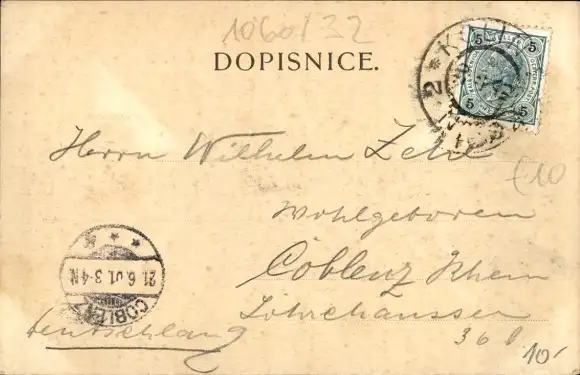 1060/32
DOPISNICE.
5 5
5 5
2
Herrn Wilhelm Zehl
£10
Wohlgeboren
Coblenz Rhein
COBLENZ
21.6.01.3-4N
Deutschland
10.-